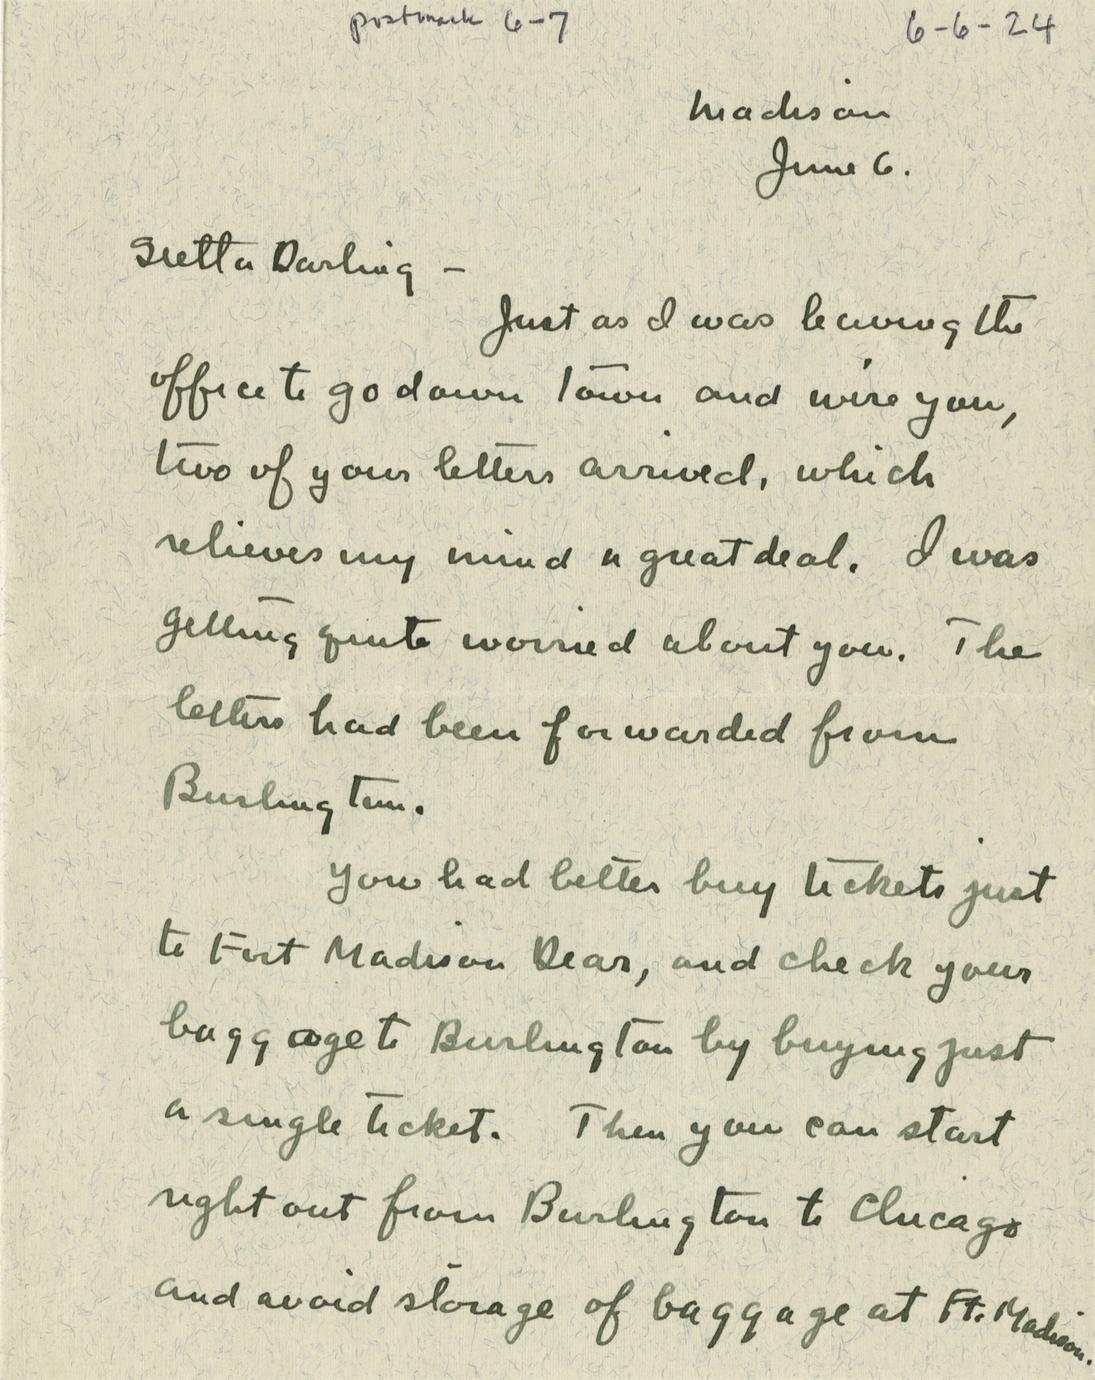 postmark 6-7 6-6-24
Madison
June 6.
Gretta Darling –
Just as I was leaving the
office to go down town and wire you,
two of your letters arrived, which
relieves my mind a great deal. I was
getting quite worried about you. The
letters had been forwarded from
Burlington.
You had better buy tickets just
to Fort Madison Dear, and check your
baggage to Burlington by buying just
a single ticket. Then you can start
right out from Burlington to Chicago
and avoid storage of baggage at Ft. Madison.